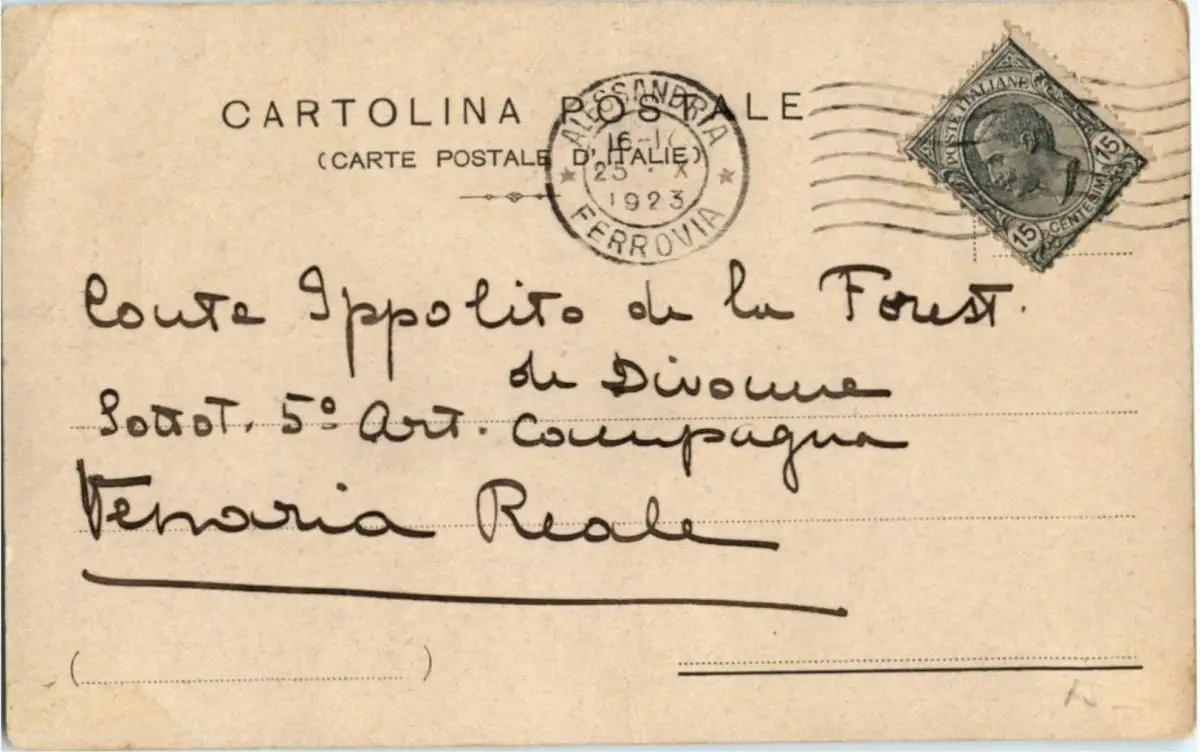 CARTOLINA POSTALE
(CARTE POSTALE D'ITALIE)
ALESSANDRIA
16-17
25 · X
1923
FERROVIA
POSTE ITALIANE
15 CENTESIMI 15
Conte Ippolito de la Forest.
de Divonne
Sottot. 5º Art. Campagna
Venaria Reale